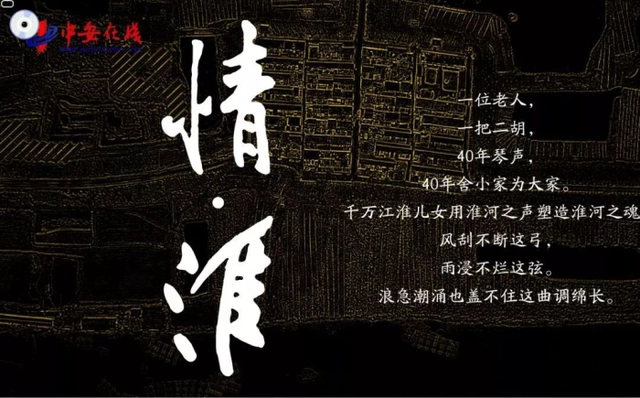 中安在线
情·淮
一位老人，
一把二胡，
40年琴声，
40年舍小家为大家。
千万江淮儿女用淮河之声塑造淮河之魂
风刮不断这弓，
雨浸不烂这弦。
浪急潮涌也盖不住这曲调绵长。